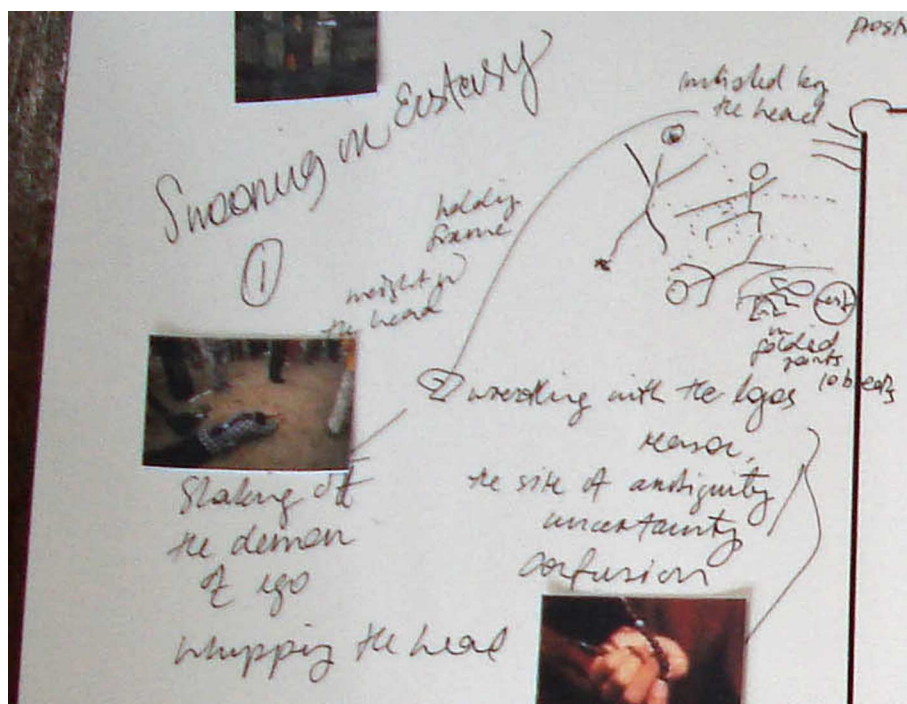 Swooning in Ecstasy
①
initiated by
the head
holding
frame
weight of
the head
in
folded
joints
②
wrestling with the logos
reason,
the site of ambiguity
uncertainty
confusion
Shaking off
the demon
of ego
whipping the head